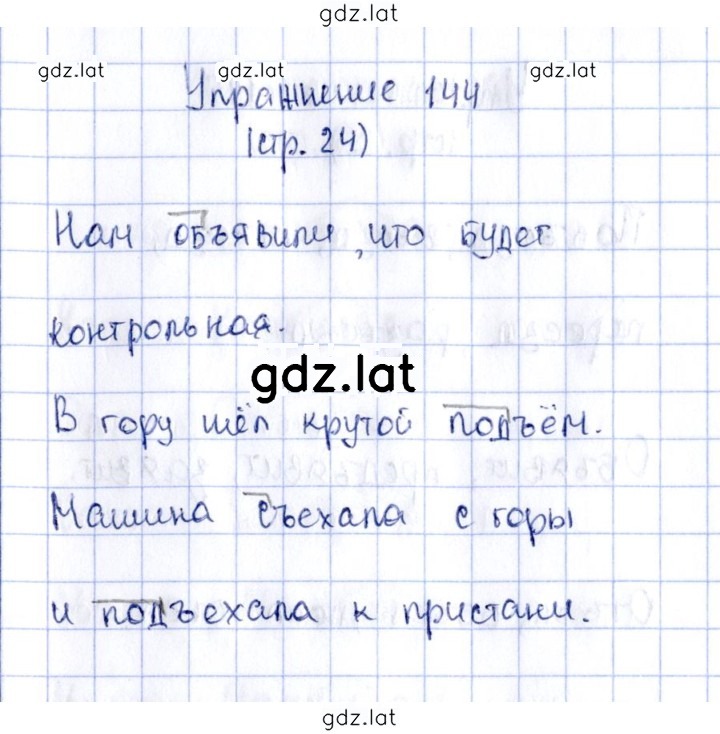 gdz.lat
gdz.lat gdz.lat gdz.lat
Упражнение 144
(стр. 24)
Нам объявили, что будет
контрольная.
gdz.lat
В гору шёл крутой подъём.
Машина съехала с горы
и подъехала к пристани.
gdz.lat